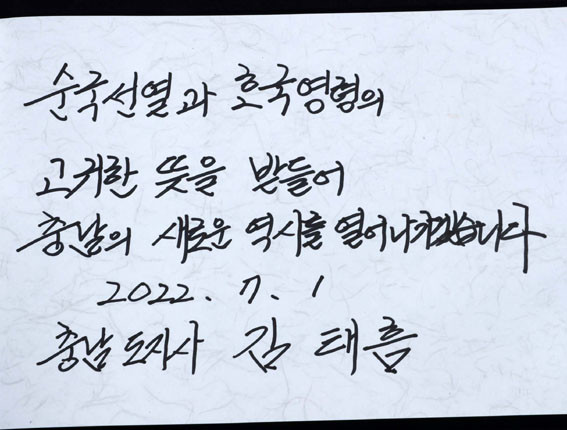 순국선열과 호국영령의
고귀한 뜻을 받들어
충남의 새로운 역사를 열어나가겠습니다
2022. 7. 1
충남도지사 김태흠